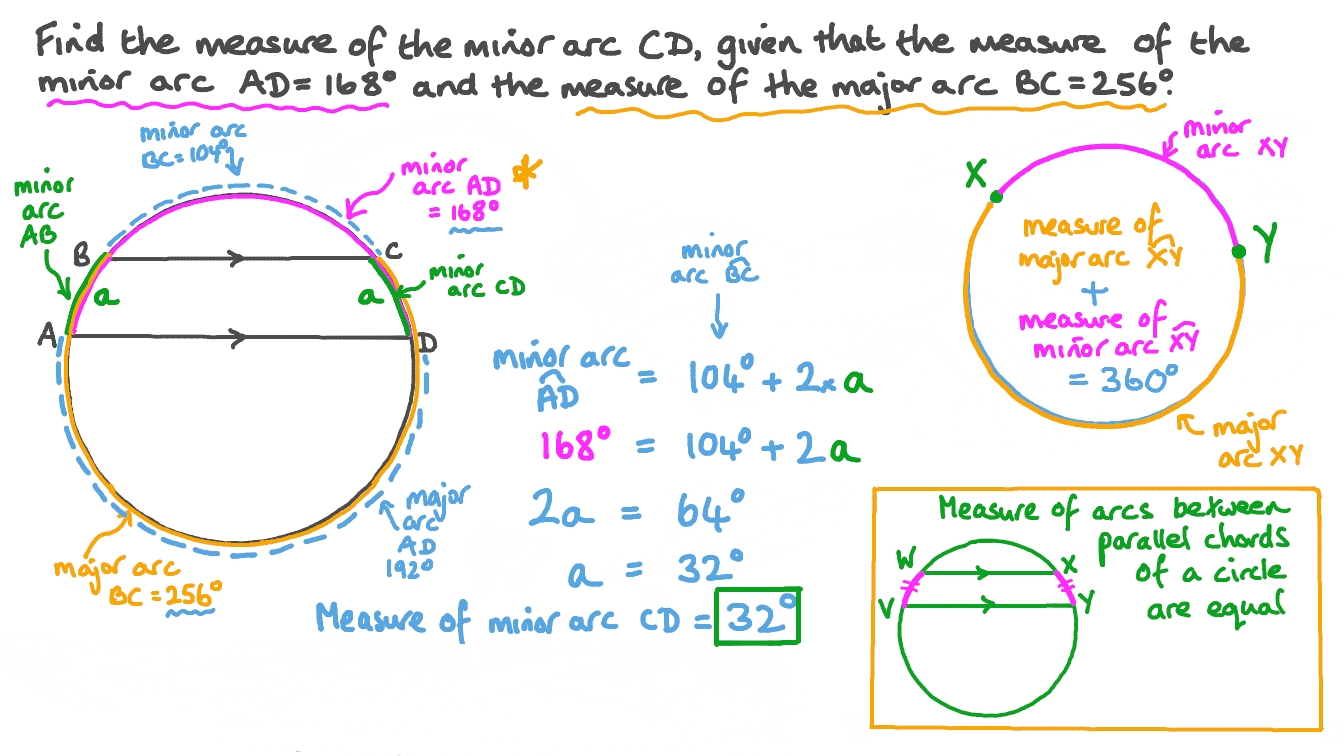 Find the measure of the minor arc CD, given that the measure of the
minor arc AD = 168° and the measure of the major arc BC = 256°.
minor arc
BC = 104°
minor
arc AD *
= 168°
minor
arc
AB
B
C
a
a
minor
arc CD
A
D
major
arc
AD
192°
major arc
BC = 256°
minor
arc BC
minor arc
AD = 104° + 2 × a
168° = 104° + 2a
2a = 64°
a = 32°
Measure of minor arc CD = 32°
minor
arc XY
X
Y
measure of
major arc XY
+
measure of
minor arc XY
= 360°
major
arc XY
Measure of arcs between
parallel chords
of a circle
are equal
W
X
V
Y